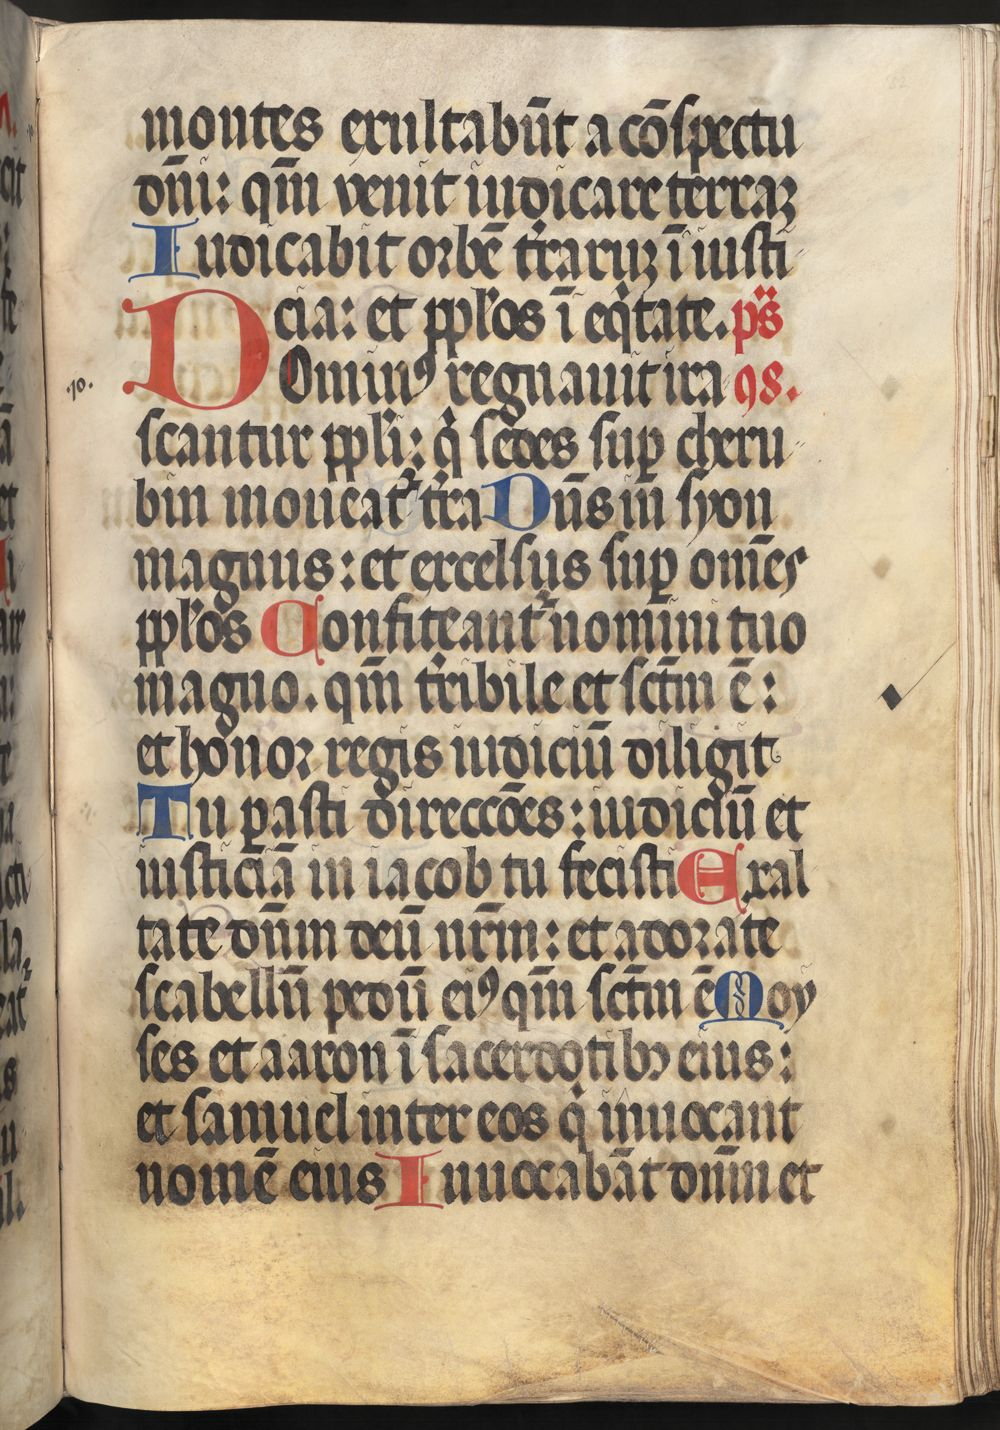 montes exultabūt a cōspectu
dn̄i: qm̄ venit iudicare terraꝫ
Iudicabit orbē tr̄aruꝫ ī iusti
cia: et ppl̓os ī eq̇tate. ps̈
Dominꝰ regnauit ira 98.
.70.
scantur ppl̓i: q̇ sedes suꝑ cheru
bin moueatᷣ tr̄a Dn̄s in syon
magnus: et excelsus suꝑ om̄es
ppl̓os Confiteantᷣ nomini tuo
magno. qm̄ tr̄ibile et sct̄m ē:
et honor regis iudiciū diligit
Tu ꝑasti direccōes: iudiciū et
iusticiā in iacob tu fecisti Exal
tate dn̄m deū nr̄m: et adorate
scabellū pedū eiꝰ qm̄ sct̄m ē Moy
ses et aaron ī sacerdotibꝫ eius:
et samuel inter eos q̇ inuocant
nomē eius Inuocabāt dn̄m et